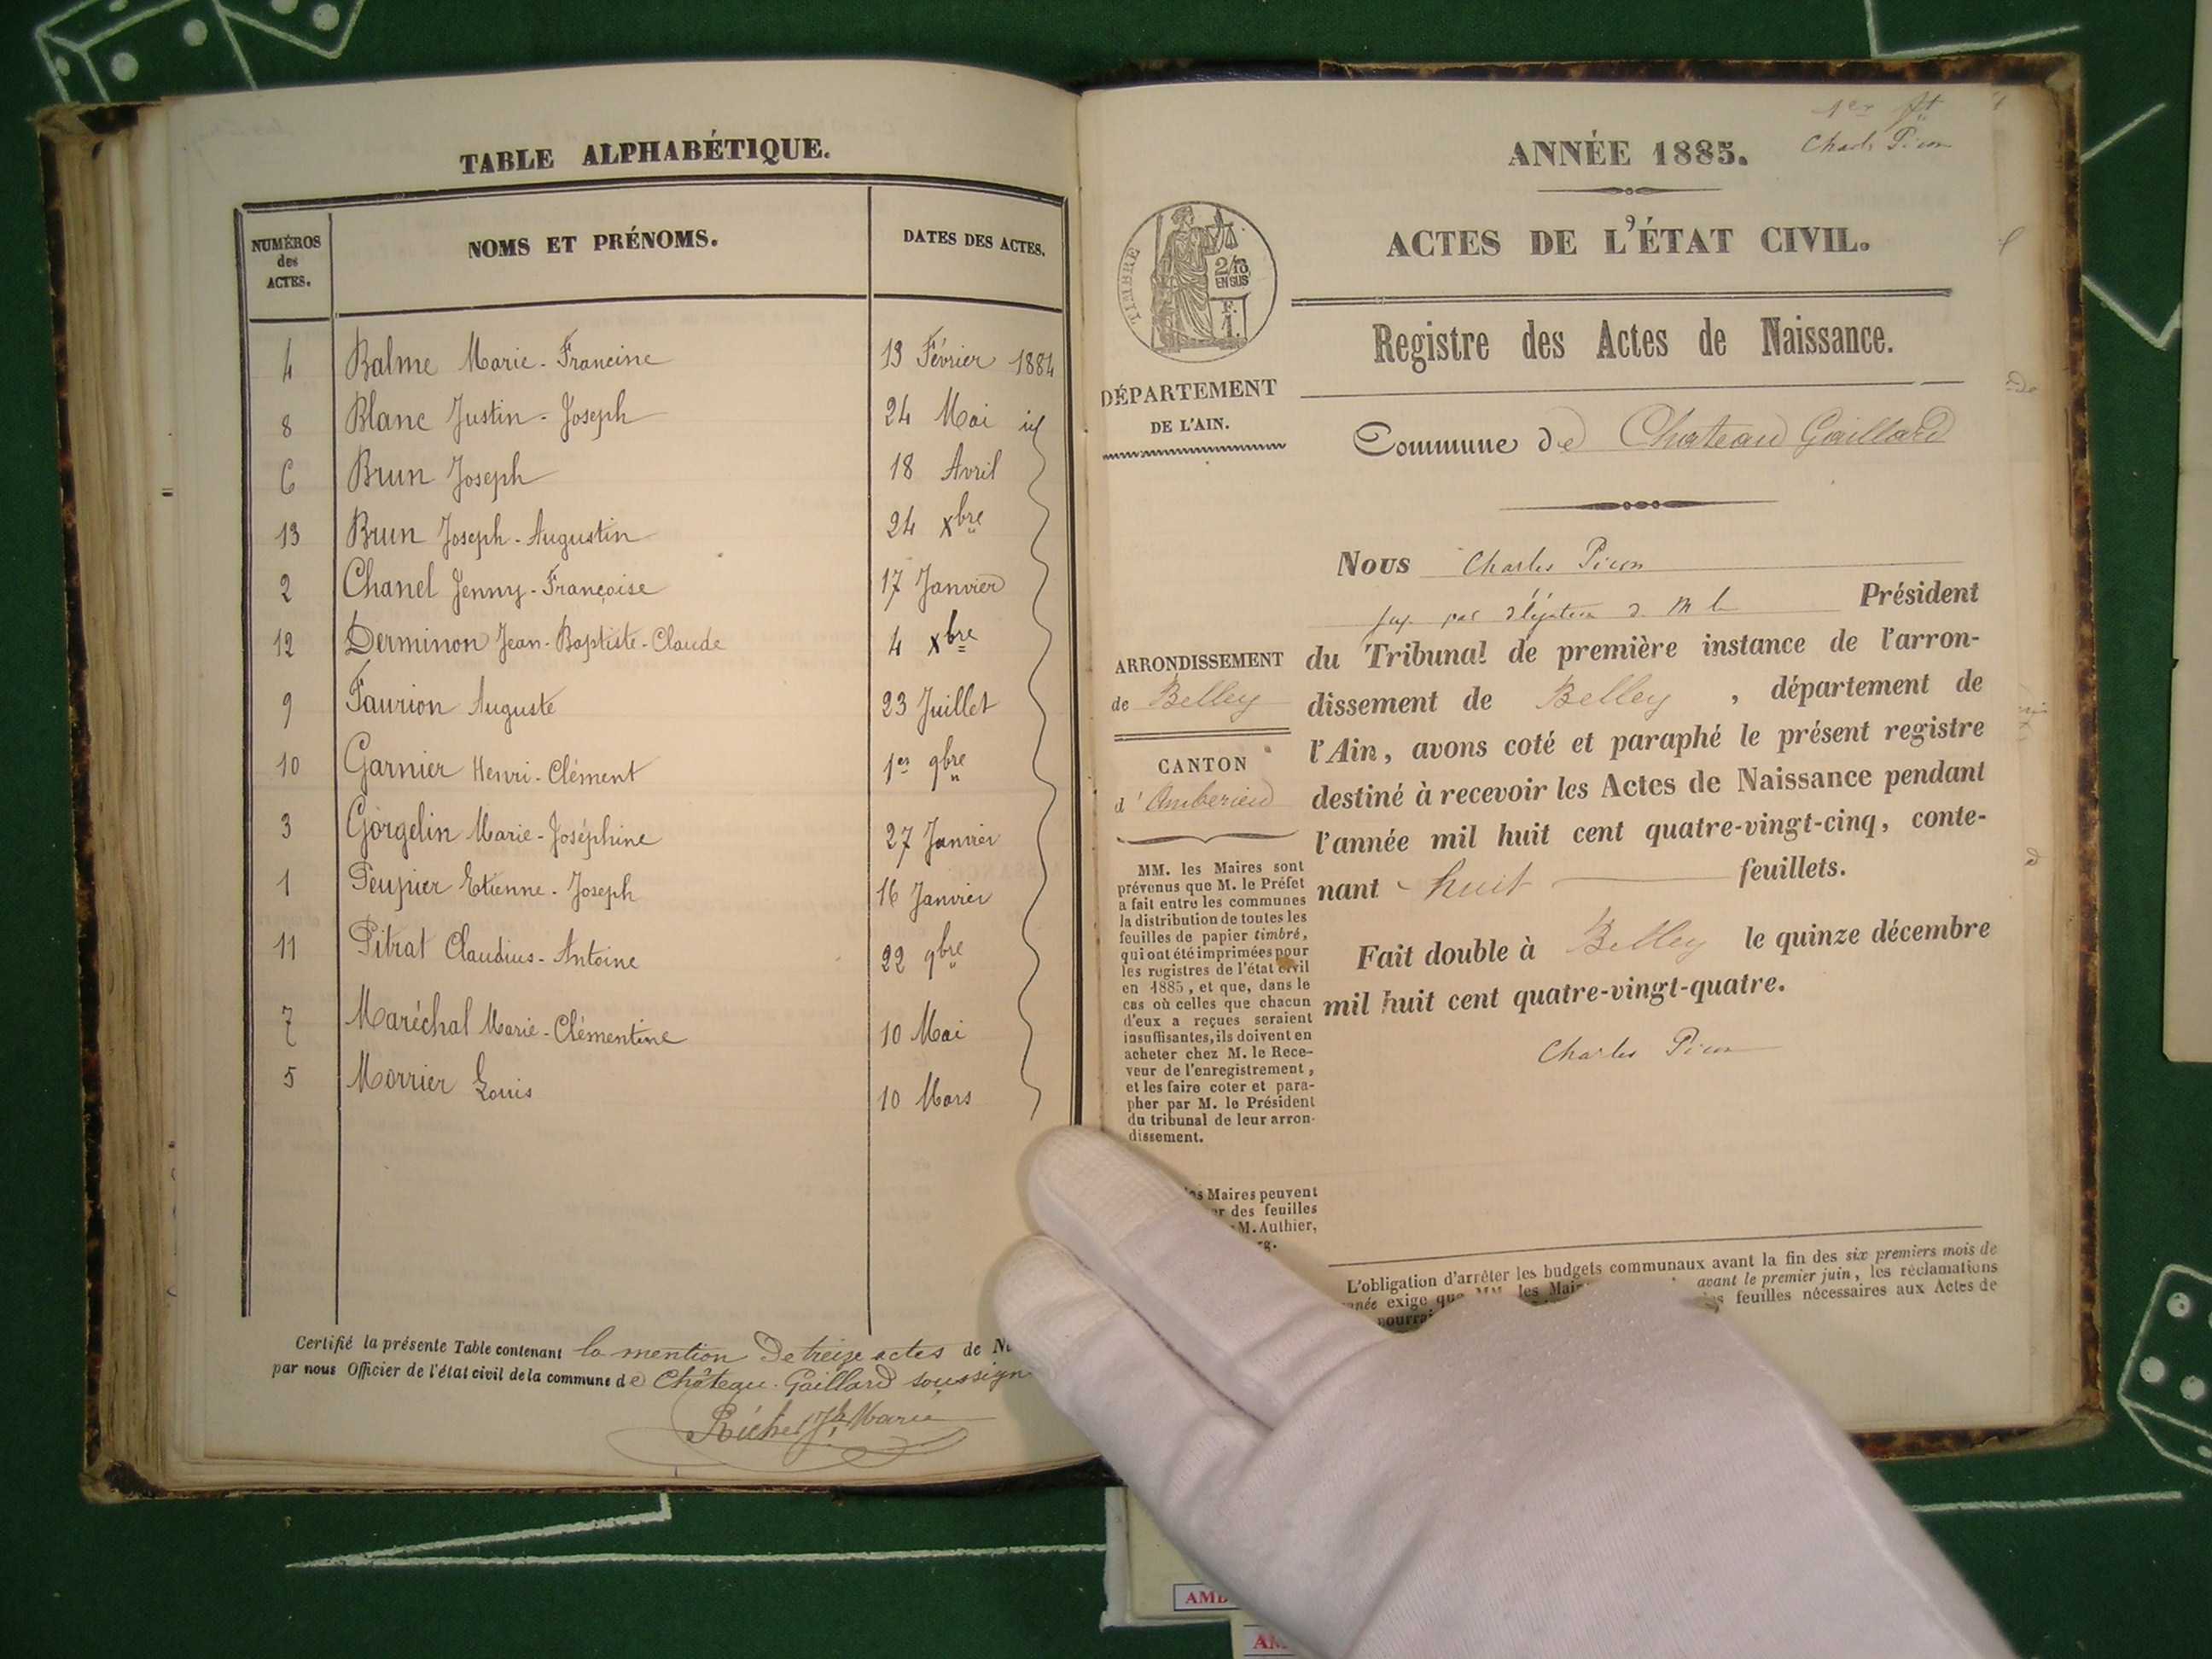 TABLE ALPHABÉTIQUE.
NUMÉROS des ACTES. NOMS ET PRÉNOMS. DATES DES ACTES.
4 Balme Marie-Francine 13 Février 1884
8 Blanc Justin-Joseph 24 Mai id
6 Brun Joseph 18 Avril
13 Brun Joseph-Augustin 24 xbre
2 Chanel Jenny-Françoise 17 Janvier
12 Derminon Jean-Baptiste-Claude 4 xbre
9 Faurion Auguste 23 Juillet
10 Garnier Henri-Clément 1er 9bre
3 Gorgelin Marie-Joséphine 27 Janvier
1 Peupier Etienne-Joseph 16 Janvier
11 Pitrat Claudius-Antoine 22 9bre
7 Maréchal Marie-Clémentine 10 Mai
5 Morrier Louis 10 Mars
Certifié la présente Table contenant la mention de treize actes de
par nous Officier de l'état civil de la commune de Château-Gaillard
1er ft
Charles Picon
ANNÉE 1885.
ACTES DE L'ÉTAT CIVIL.
TIMBRE
2/10
EN SUS
F.
1.
Registre des Actes de Naissance.
DÉPARTEMENT
DE L'AIN.
Commune de Chateau Gaillard
Nous Charles Picon
juge par délégation Président
ARRONDISSEMENT
de Belley
CANTON
d'Amberieu
du Tribunal de première instance de l'arron-
dissement de Belley, département de
l'Ain, avons coté et paraphé le présent registre
destiné à recevoir les Actes de Naissance pendant
l'année mil huit cent quatre-vingt-cinq, conte-
nant huit feuillets.
Fait double à Belley le quinze décembre
mil huit cent quatre-vingt-quatre.
Charles Picon
MM. les Maires sont
prévenus que M. le Préfet
a fait entre les communes
la distribution de toutes les
feuilles de papier timbré,
qui ont été imprimées pour
les registres de l'état civil
en 1885, et que, dans le
cas où celles que chacun
d'eux a reçues seraient
insuffisantes, ils doivent en
acheter chez M. le Rece-
veur de l'enregistrement,
et les faire coter et para-
pher par M. le Président
du tribunal de leur arron-
dissement.
Maires peuvent
des feuilles
M. Authier,
L'obligation d'arrêter les budgets communaux avant la fin des six premiers mois de
exige que MM. les avant le premier juin, les réclamations
feuilles nécessaires aux Actes de